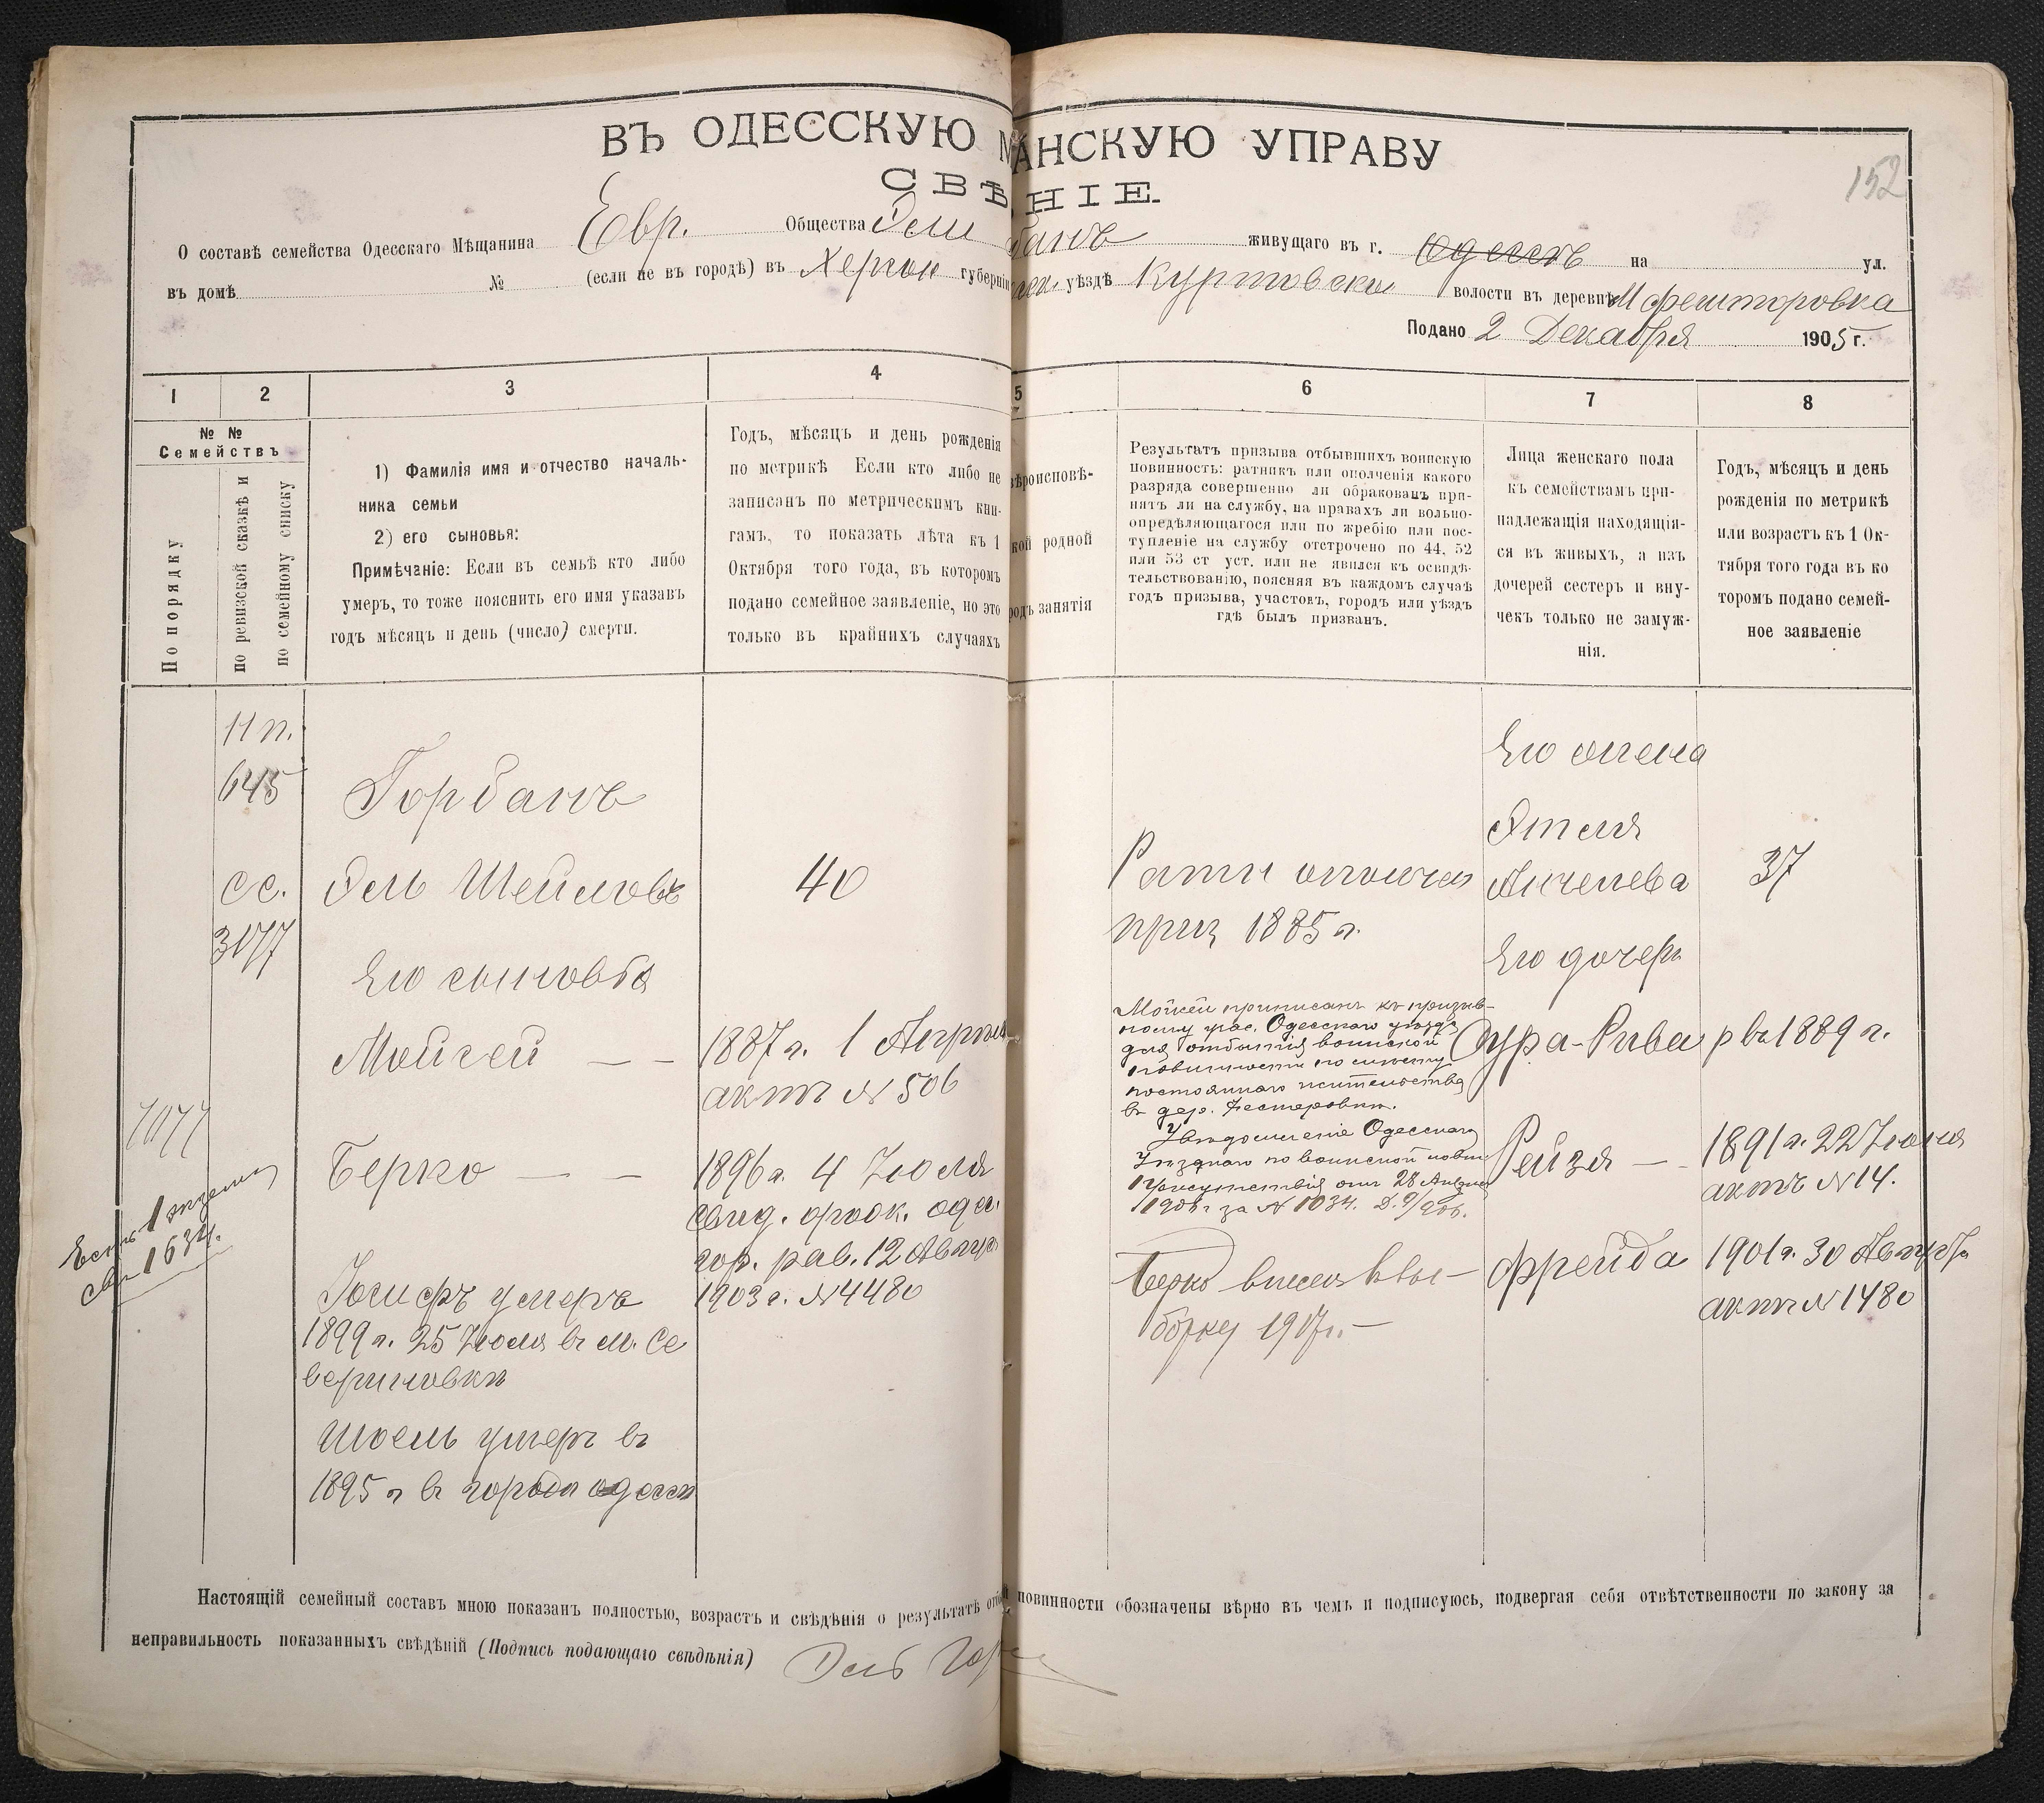 152
ВЪ ОДЕССКУЮ М АНСКУЮ УПРАВУ
СВѢ НІЕ.
О составѣ семейства Одесскаго Мѣщанина Евр. Общества Эли банъ живущаго въ г. Одессѣ на ул.
въ домѣ № (если не въ городѣ) въ Херсон губерніи уѣздѣ Куртовско волости въ деревнѣ
Подано 2 Декабря 1905 г.
1 2 3 4 5 6 7 8
№ №
Семействъ
По порядку
по ревизской сказкѣ и
по семейному списку
1) Фамилія имя и отчество началь-
ника семьи
2) его сыновья:
Примѣчаніе: Если въ семьѣ кто либо
умеръ, то тоже пояснить его имя указавъ
годъ мѣсяцъ и день (число) смерти.
Годъ, мѣсяцъ и день рожденія
по метрикѣ Если кто либо не
записанъ по метрическимъ кни-
гамъ, то показать лѣта къ 1
Октября того года, въ которомъ
подано семейное заявленіе, но это
только въ крайнихъ случаяхъ
вѣроисповѣ-
кой родной
родъ занятія
Результатъ призыва отбывшихъ воинскую
повинность: ратникъ или ополченія какого
разряда совершенно ли обракованъ при-
нятъ ли на службу, на правахъ ли вольно-
опредѣляющагося или по жребію или пос-
тупленіе на службу отстрочено по 44, 52
или 53 ст уст. или не явился къ освидѣ-
тельствованію, поясняя въ каждомъ случаѣ
годъ призыва, участокъ, городъ или уѣздъ
гдѣ былъ призванъ.
Лица женскаго пола
къ семействамъ при-
надлежащія находящія-
ся въ живыхъ, а изъ
дочерей сестеръ и вну-
чекъ только не замуж-
нія.
Годъ, мѣсяцъ и день
рожденія по метрикѣ
или возрастъ къ 1 Ок-
тября того года въ ко
торомъ подано семей-
ное заявленіе
11 п.
645
сс.
3177
7177
Есть 1 экземп
св 1632.
Горбанъ
Эль Шеиловъ
Его сыновья
Мойсей — —
Берко — —
Иосифъ умеръ
1899 г. 25 Июля въ м. Се
вериновки
Шоель умеръ въ
1895 г въ городе одессы
40
1887 г. 1 Апреля
актъ № 506
1896 г. 4 Июля
свид. одес.
гор. рав. 12 Август
1903 г. № 4480
Ратн ополчен
приз 1885 г.
Мойсей приписанъ къ призыв-
ному учас. Одесскаго уѣзда
для отбытія воинской
повинности по месту
постояннаго жительства
въ дер. Нестеровки.
Увѣдомленіе Одесскаго
Уѣзднаго по воинской повин
Присутствія отъ 28
за № 1034.
Берко внесен къ вы-
борку 1917 г. —
Его жена
Этля
Анчелева
Его дочери
Сура-Рива
Рейзя —
Фрейда
37
р въ 1889 г.
1891 г. 22 Июня
актъ № 14.
1901 г. 30 Августа
актъ № 1480
Настоящій семейный составъ мною показанъ полностью, возрастъ и свѣдѣнія о результатѣ отбы повинности обозначены вѣрно въ чемъ и подписуюсь, подвергая себя отвѣтственности по закону за
неправильность показанныхъ свѣдѣній (Подпись подающаго свѣдѣнія) Эль Гор